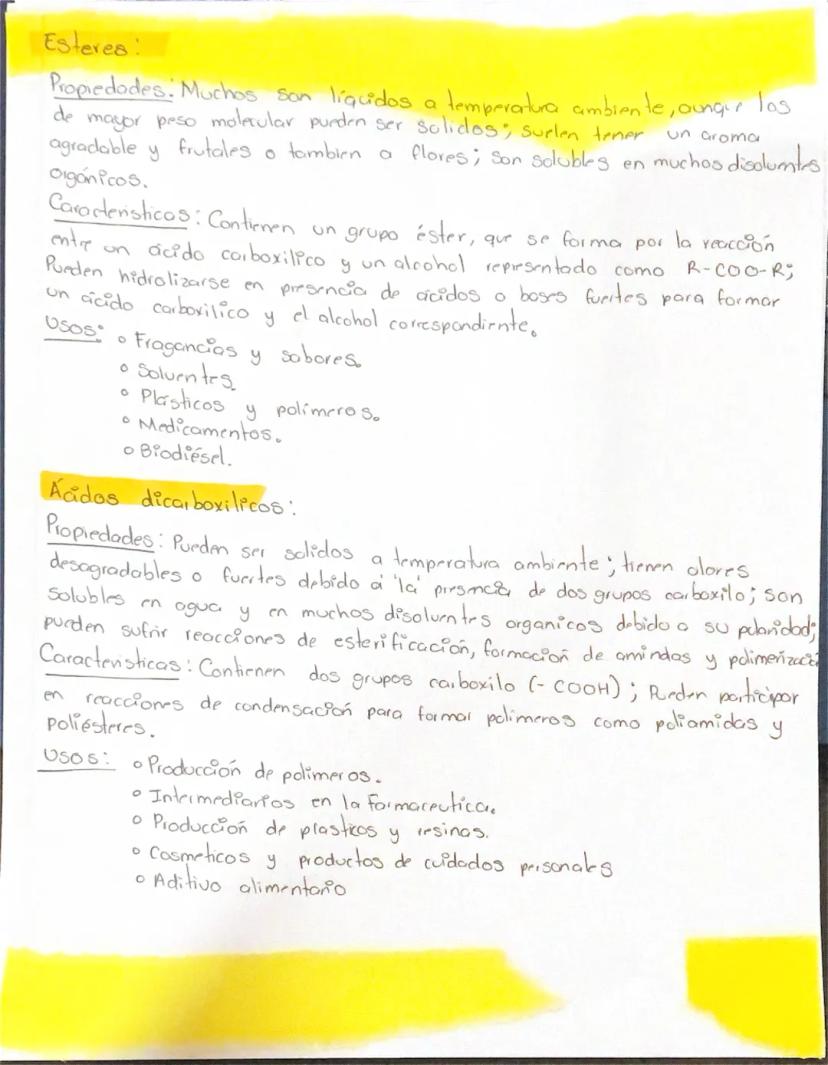 Esteres:
Propiedades: Muchos son líquidos a temperatura ambiente, aunque los
de mayor peso molecular pueden ser solidos; suelen tener un aroma
agradable y frutales o tambien a flores; son solubles en muchos disolventes
orgánicos.
Caracteristicas: Contienen un grupo éster, que se forma por la reacción
entre un ácido carboxilico y un alcohol representado como R-COO-R;
Pueden hidrolizarse en presencia de ácidos o bases fuertes para formar
un ácido carboxilico y el alcohol correspondiente.
Usos: o Fragancias y sabores.
o Solventes
o Plásticos y polímeros.
o Medicamentos.
o Biodiésel.
Ácidos dicarboxilicos:
Propiedades: Pueden ser solidos a temperatura ambiente; tienen olores
desagradables o fuertes debido a la presencia de dos grupos carboxilo; son
solubles en agua y en muchos disolventes organicos debido a su polaridad;
pueden sufrir reacciones de esterificación, formación de amindas y polimerizació
Caracteristicas: Contienen dos grupos carboxilo (-COOH); Pueden participar
en reacciones de condensación para formar polimeros como poliamidas y
poliésteres.
Usos: o Producción de polimeros.
o Intermediarios en la farmaceutica.
o Producción de plasticos y resinas.
o Cosmeticos y productos de cuidados personales
o Aditivo alimentario